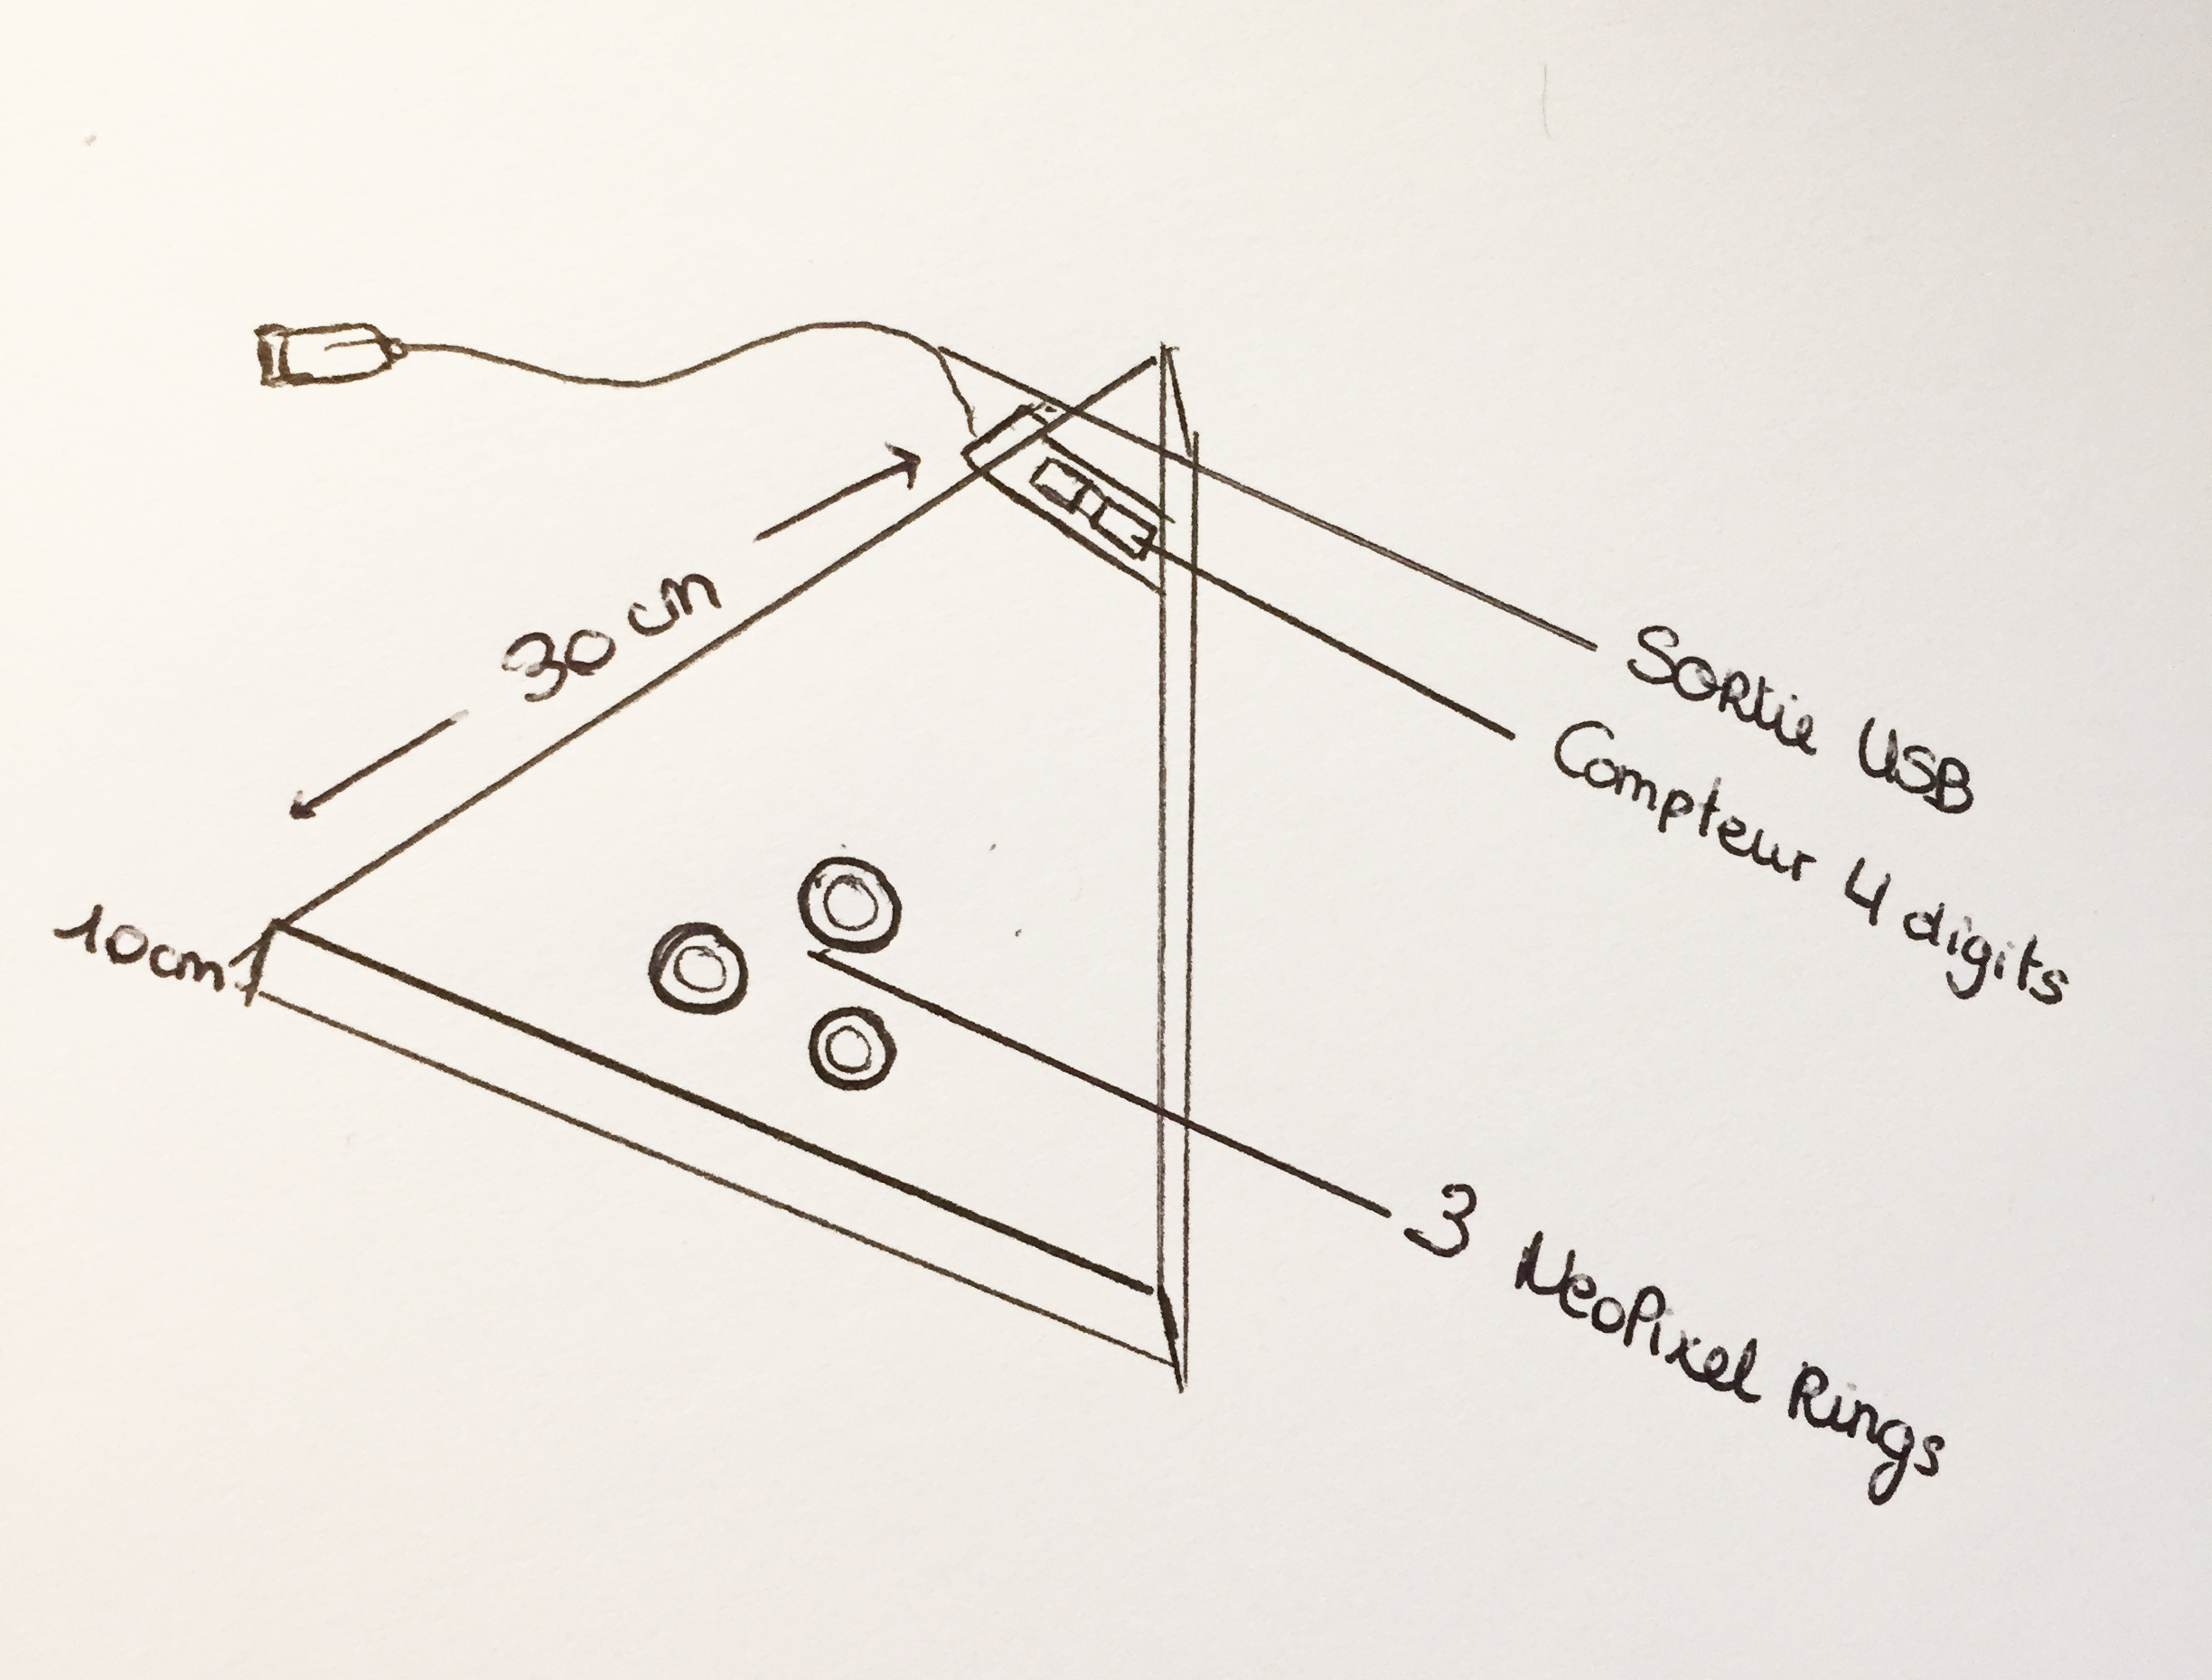 30 cm
Sortie USB
Compteur 4 digits
10cm
3 NeoPixel Rings